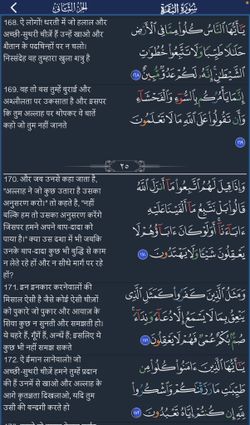 الجزء الثاني
سورة البقرة
168. ऐ लोगों! धरती में जो हलाल और
अच्छी-सुथरी चीज़ें हैं उन्हें खाओ और
शैतान के पदचिन्हों पर न चलो।
निस्संदेह वह तुम्हारा खुला शत्रु है
يَٰٓأَيُّهَا ٱلنَّاسُ كُلُوا۟ مِمَّا فِى ٱلْأَرْضِ
حَلَٰلًا طَيِّبًا وَلَا تَتَّبِعُوا۟ خُطُوَٰتِ
ٱلشَّيْطَٰنِ إِنَّهُۥ لَكُمْ عَدُوٌّ مُّبِينٌ ١٦٨
169. वह तो बस तुम्हें बुराई और
अश्लीलता पर उकसाता है और इसपर
कि तुम अल्लाह पर थोपकर वे बातें
कहो जो तुम नहीं जानते
إِنَّمَا يَأْمُرُكُم بِٱلسُّوٓءِ وَٱلْفَحْشَآءِ
وَأَن تَقُولُوا۟ عَلَى ٱللَّهِ مَا لَا تَعْلَمُونَ
١٦٩
٢٥
170. और जब उनसे कहा जाता है,
"अल्लाह ने जो कुछ उतारा है उसका
अनुसरण करो।" तो कहते है, "नहीं
बल्कि हम तो उसका अनुसरण करेंगे
जिसपर हमने अपने बाप-दादा को
पाया है।" क्या उस दशा में भी जबकि
उनके बाप-दादा कुछ भी बुद्धि से काम
न लेते रहे हों और न सीधे मार्ग पर रहे
हों?
وَإِذَا قِيلَ لَهُمُ ٱتَّبِعُوا۟ مَآ أَنزَلَ ٱللَّهُ
قَالُوا۟ بَلْ نَتَّبِعُ مَآ أَلْفَيْنَا عَلَيْهِ
ءَابَآءَنَآ أَوَلَوْ كَانَ ءَابَآؤُهُمْ لَا
يَعْقِلُونَ شَيْـًٔا وَلَا يَهْتَدُونَ ١٧٠
171. इन इनकार करनेवालों की
मिसाल ऐसी है जैसे कोई ऐसी चीज़ों
को पुकारे जो पुकार और आवाज़ के
सिवा कुछ न सुनती और समझती हो।
ये बहरे हैं, गूँगें हैं, अन्धें हैं; इसलिए ये
कुछ भी नहीं समझ सकते
وَمَثَلُ ٱلَّذِينَ كَفَرُوا۟ كَمَثَلِ ٱلَّذِى
يَنْعِقُ بِمَا لَا يَسْمَعُ إِلَّا دُعَآءً وَنِدَآءً
صُمٌّۢ بُكْمٌ عُمْىٌ فَهُمْ لَا يَعْقِلُونَ ١٧١
172. ऐ ईमान लानेवालो! जो
अच्छी-सुथरी चीज़ें हमने तुम्हें प्रदान
की हैं उनमें से खाओ और अल्लाह के
आगे कृतज्ञता दिखलाओ, यदि तुम
उसी की बन्दगी करते हो
يَٰٓأَيُّهَا ٱلَّذِينَ ءَامَنُوا۟ كُلُوا۟ مِن
طَيِّبَٰتِ مَا رَزَقْنَٰكُمْ وَٱشْكُرُوا۟
لِلَّهِ إِن كُنتُمْ إِيَّاهُ تَعْبُدُونَ ١٧٢